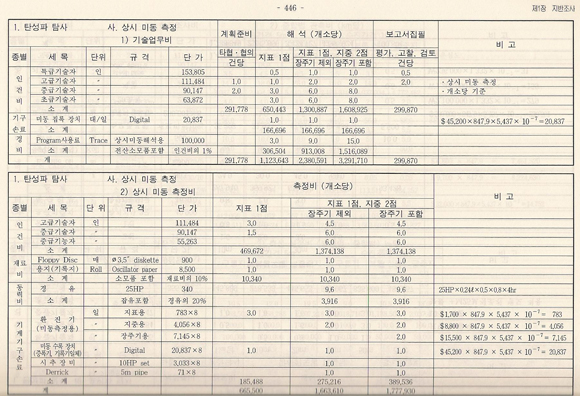 - 446 -
제1장 지반조사
1. 탄성파 탐사 사. 상시 미동 측정
1) 기술업무비
계획준비 해 석 (개소당) 보고서집필 비 고
타협·협의 지표 1점 지표 1점, 지중 2점 평가, 고찰, 검토
종별 세 목 단위 규 격 단 가 건당 장주기 제외 장주기 포함 건당
인건비 특급기술자 인 153,805 0,5 1,0 1,0 0,5
고급기술자 〃 111,484 1,0 1,0 2,0 2,0 2,0 - 상시 미동 측정
중급기술자 〃 90,147 2,0 3,0 6,0 8,0 - 개소당 기준
초급기술자 〃 63,872 3,0 6,0 8,0
소 계 291,778 650,443 1,300,887 1,608,925 299,870
기구손료 미동 집록 장치 대/일 Digital 20,837 1,0 1,0 1,0 $ 45,200 × 847.9 × 5,437 × 10⁻⁷ = 20,837
소 계 166,696 166,696 166,696
경비 Program사용료 Trace 상시미동해석용 100,000 3,0 9,0 15,0
소 계 전산소모품포함 인건비의 1% 306,504 913,008 1,516,089
계 291,778 1,123,643 2,380,591 3,291,710 299,870
1. 탄성파 탐사 사. 상시 미동 측정
2) 상시 미동 측정비
측정비 (개소당) 비 고
지표 1점 지표 1점, 지중 2점
종별 세 목 단 위 규 격 단 가 장주기 제외 장주기 포함
인건비 고급기술자 인 111,484 3,0 4,5 4,5
중급기술자 〃 90,147 1,5 6,0 6,0
중급기능사 〃 55,263 6,0 6,0
소 계 469,672 1,374,138 1,374,138
재료비 Floppy Disc 매 ø3,5" diskette 900 1,0 1,0 1,0
용지(기록지) Roll Oscillator paper 8,500 1,0 1,0 1,0
소 계 소모품 포함 재료비의 10% 10,340 10,340 10,340
동력비 경 유 25HP 340 9,6 9,6 25HP×0,24ℓ×0,5×0,8×4hr
소 계 잡유포함 경유의 20% 3,916 3,916
기계기구손료 환 진 기 일 지표용 783×8 3,0 3,0 3,0 $ 1,700 × 847.9 × 5,437 × 10⁻⁷ = 783
(미동측정용) 〃 지중용 4,056×8 2,0 2,0 $ 8,800 × 847.9 × 5,437 × 10⁻⁷ = 4,056
〃 장주기용 7,145×8 2,0 $ 15,500 × 847.9 × 5,437 × 10⁻⁷ = 7,145
미동 수록 장치 〃 Digital 20,837×8 1,0 1,0 1,0 $ 45,200 × 847.9 × 5,437 × 10⁻⁷ = 20,837
시 추 장 비 〃 10HP set 3,033×8 1,0 1,0
Derrick 〃 5m pipe 71×8 1,0 1,0
소 계 185,488 275,216 389,536
계 665,500 1,663,610 1,777,930